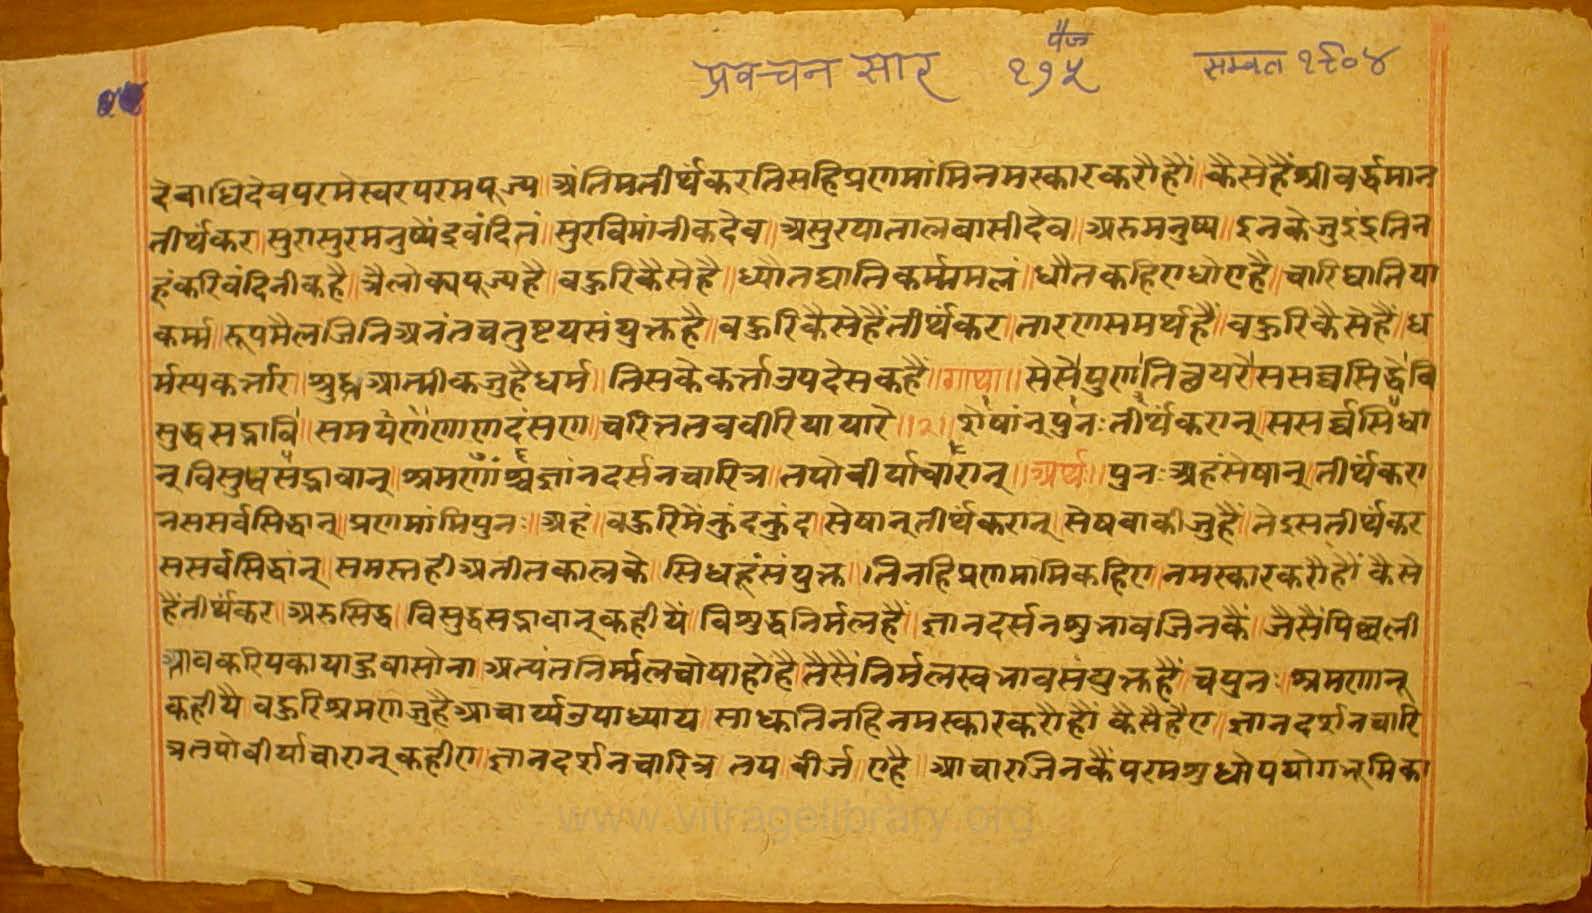 प्रवचन सार पेज १७५ सम्वत १९०४
देवाधिदेवपरमेस्वरपरमपूज्य॥अंतिमतीर्थंकरतिसहिप्रणमांमिनमस्कारकरौहौं॥कैसेहैंश्रीवर्द्धमान
तीर्थंकर॥सुरासुरमनुष्येंद्रवंदितं॥सुरविमांनीकदेव॥असुरपातालबासीदेव॥अरुमनुष्य॥इनकेजुइंद्रतिन
हंकरिवंदिनीकहै॥त्रैलोक्यपूज्यहै॥बहुरिकैसेहै॥ध्यौतघातिकर्म्ममलं॥धौतकहिएधोएहै॥चारिघातिया
कर्म्म॥रूपमैलजिनिअनंतचतुष्टयसंयुक्तहै॥बहुरिकैसेहैंतीर्थंकर॥तारणसमर्थहैं॥बहुरिकैसेहैं॥ध
र्मस्यकर्त्तार॥श्रुद्धआत्मीकजुहैधर्म॥तिसकेकर्त्ताउपदेसकहैं॥गाथा॥सेसेपुणतित्थयरेससव्वसिद्धेवि
सुद्धसद्भावे॥समणेयणाणदंसण॥चरित्ततववीरियायारे॥२॥शेषांन्पुनःतीर्थंकरान्॥ससर्व्वसिधा
न्विसुधसद्भावान्॥श्रमणांश्चज्ञांनदर्सनचारित्र॥तपोवीर्याचारान्॥अर्थ॥पुनःअहंसेषान्॥तीर्थंकरा
नससर्वसिद्धान्॥प्रणमांमिपुनः॥अहं॥बहुरिमेंकुंदकुंद॥सेषान्तीर्थंकरान्॥सेषबाकीजुहैं॥तेइसतीर्थंकर
ससर्वसिद्धांन्॥समस्तहीअतीतकालके॥सिधहंसंयुक्त॥तिनहिप्रणमामिकहिए॥नमस्कारकरौहौं॥कैसे
हैंतीर्थंकर॥अरुसिद्ध॥विसुद्धसद्भावान्कहीयै॥विशुद्धनिर्मलहैं॥ज्ञानदर्सनशुभावजिनकैं॥जैसैंपिछली
आवकरिपकायाहुवासोना॥अत्यंतनिर्म्मलचोषाहोहै॥तैसैंनिर्मलस्वभावसंयुक्तहैं॥चपुनः॥श्रमणान्
कहीयै॥बहुरिश्रमणजुहैआचार्य्यउपाध्याय॥साधतिनहिनमस्कारकरौहौं॥कैसैहैए॥ज्ञानदर्शनचारि
त्रतपोवीर्याचारान्कहीए॥ज्ञानदर्शनचारित्र॥तप॥वीर्ज॥एहै॥आचारजिनकैंपरमशुधोपयोगभूमिका
www.vitragelibrary.org